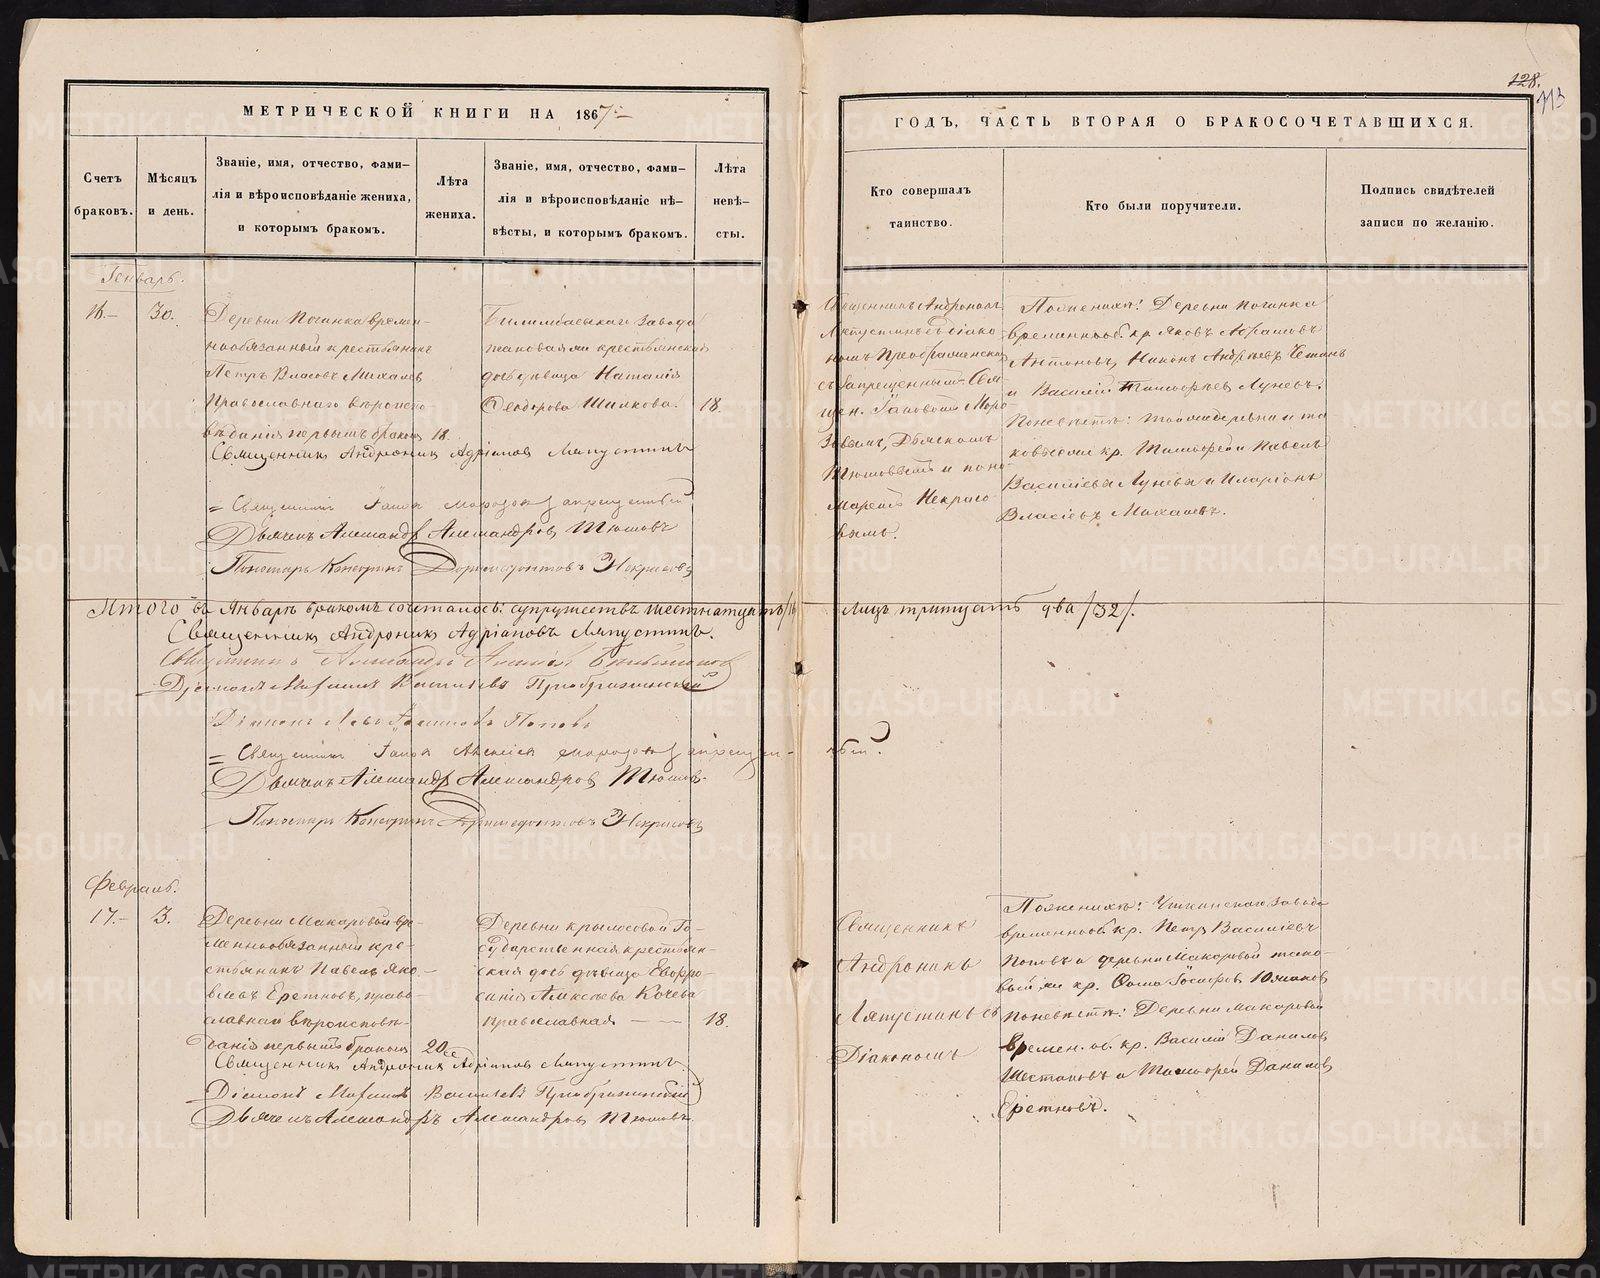 128.
113
МЕТРИЧЕСКОЙ КНИГИ НА 1867
ГОДЪ, ЧАСТЬ ВТОРАЯ О БРАКОСОЧЕТАВШИХСЯ.
Счетъ браковъ.
Мѣсяцъ и день.
Званіе, имя, отчество, фами-
лія и вѣроисповѣданіе жениха,
и которымъ бракомъ.
Лѣта
жениха.
Званіе, имя, отчество, фами-
лія и вѣроисповѣданіе не-
вѣсты, и которымъ бракомъ.
Лѣта
невѣ-
сты.
Кто совершалъ
таинство.
Кто были поручители.
Подпись свидѣтелей
записи по желанію.
Генварь.
16.
30.
Деревни Починка времен-
нообязанный крестьянинъ
Петръ Власовъ Михалев
Православнаго вѣроиспо
вѣданія первымъ бракомъ
18.
Билимбаевскаго Завода
таковая ми крестьянская
дочь дѣвица Наталія
Феодорова Шилкова.
18.
Священникъ Андроникъ
Ляпустинъ съ діако-
номъ Преображенским
съ Запрещеннымъ Свя-
щен. Іаковомъ Моро-
зовымъ, Дьячкомъ
Тюшовымъ и поно-
маремъ Некрасо-
вымъ.
По женихѣ: Деревни Починка
временнооб. кр. Яковъ Абрамовъ
Антоновъ, Никонъ Андреевъ
и Василій Тимофеев Лунёвъ.
По невѣстѣ: той же деревни и та
ковыеми кр. Тимофей и Павелъ
Васильевы Луневы и Иларіонъ
Власіевъ Михалевъ.
Священникъ Андроникъ Адріановъ Ляпустинъ
Священникъ Іаковъ Морозовъ запрещенный
Дьячекъ Александръ Александров Тюшовъ
Пономарь Доримедонтовъ Некрасовъ
Итого въ Январѣ бракомъ сочеталось: супружествъ шестнатцать /16
лицъ тритцать два /32/.
Священникъ Андроникъ Адріановъ Ляпустинъ.
Священникъ Александръ
Діаконъ Василіевъ Преображенскій
Діаконъ Попов
Священникъ Іаковъ Алексіевъ Морозовъ запрещен-
ный.
Дьячекъ Александръ Александров Тюшов.
Пономарь Доримедонтовъ Некрасовъ
Февраль.
17.
3.
Деревни Макаровой вре-
меннообязанный кре-
стьянинъ Павелъ Яко-
влевъ Еретновъ, право-
славнаго вѣроисповѣ-
данія первымъ бракомъ
20
Деревни Крылосовой Го-
сударственная крестьян-
ская дочь дѣвица Евфро-
синія Алексѣева Кочева
православная
18.
Священникъ
Андроникъ
Ляпустинъ съ
Діакономъ
По женихѣ: Уткинскаго Завода
временнооб. кр. Петръ Василіевъ
Поповъ и деревни Макаровой тако-
вый ми кр. Фома Іосифов
По невѣстѣ: Деревни Макаровой
времен. об. кр. Василій Данилов
Шестаковъ и Тимофей Данилов
Еретновъ.
Священникъ Андроникъ Адріанов Ляпустинъ
Діаконъ Василіевъ Преображенскій
Дьячекъ Александръ Александров Тюшовъ
METRIKI.GASO-URAL.RU